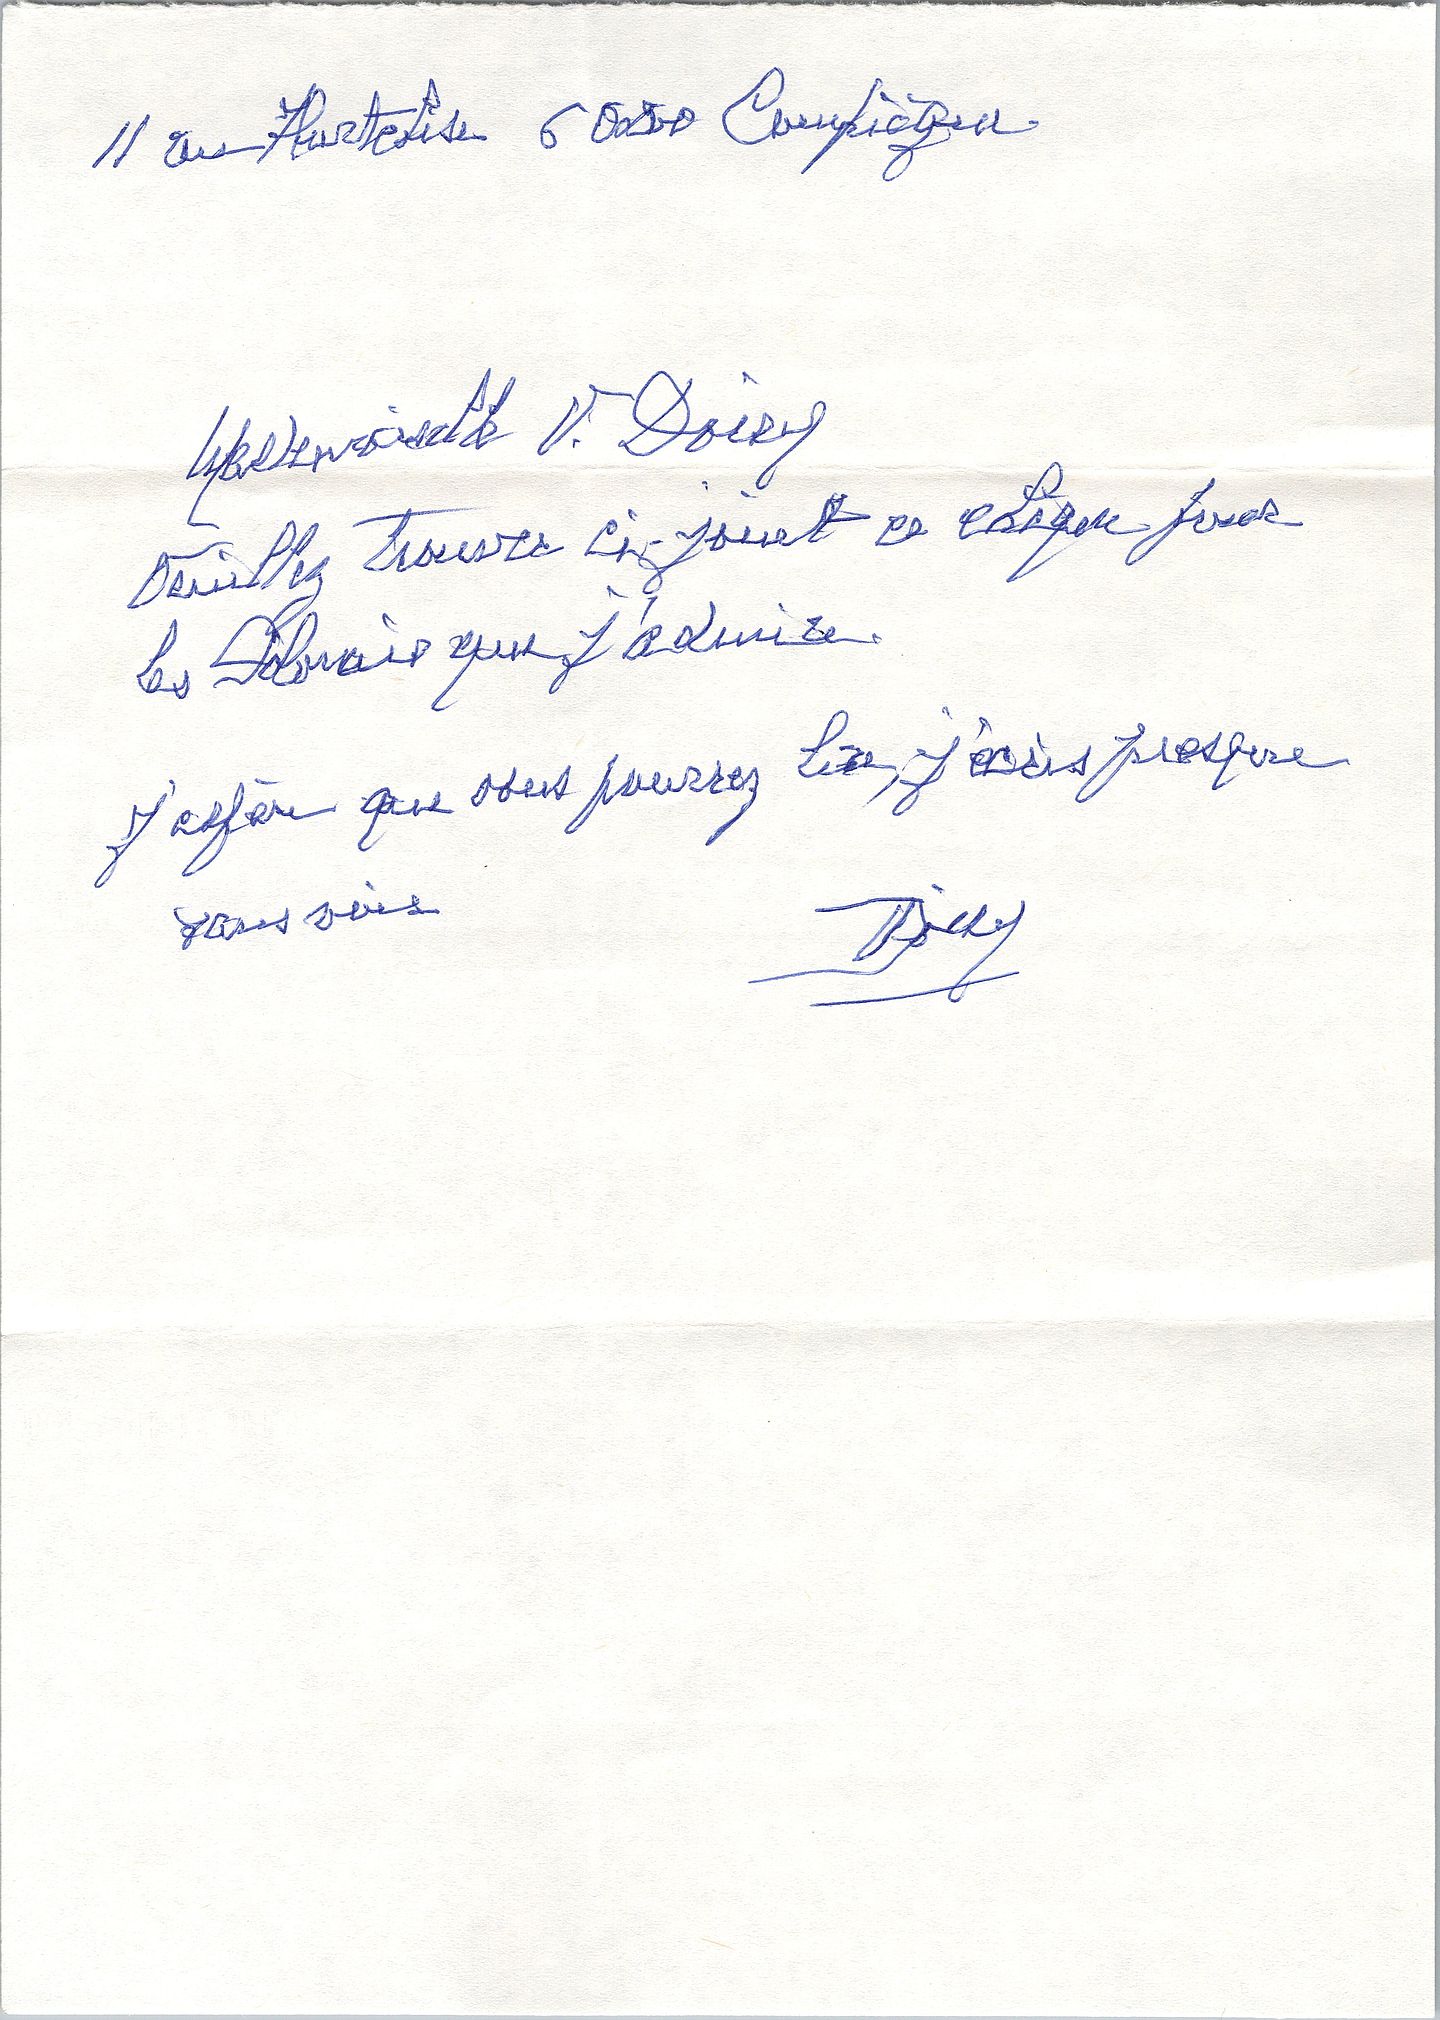 11 rue Hurtebise 60200 Compiègne
Mademoiselle V. Doisy
Veuillez trouver ci-joint ce chèque pour
les Polonais que j'admire.
J'espère que vous pourrez lire, j'écris presque
sans voir